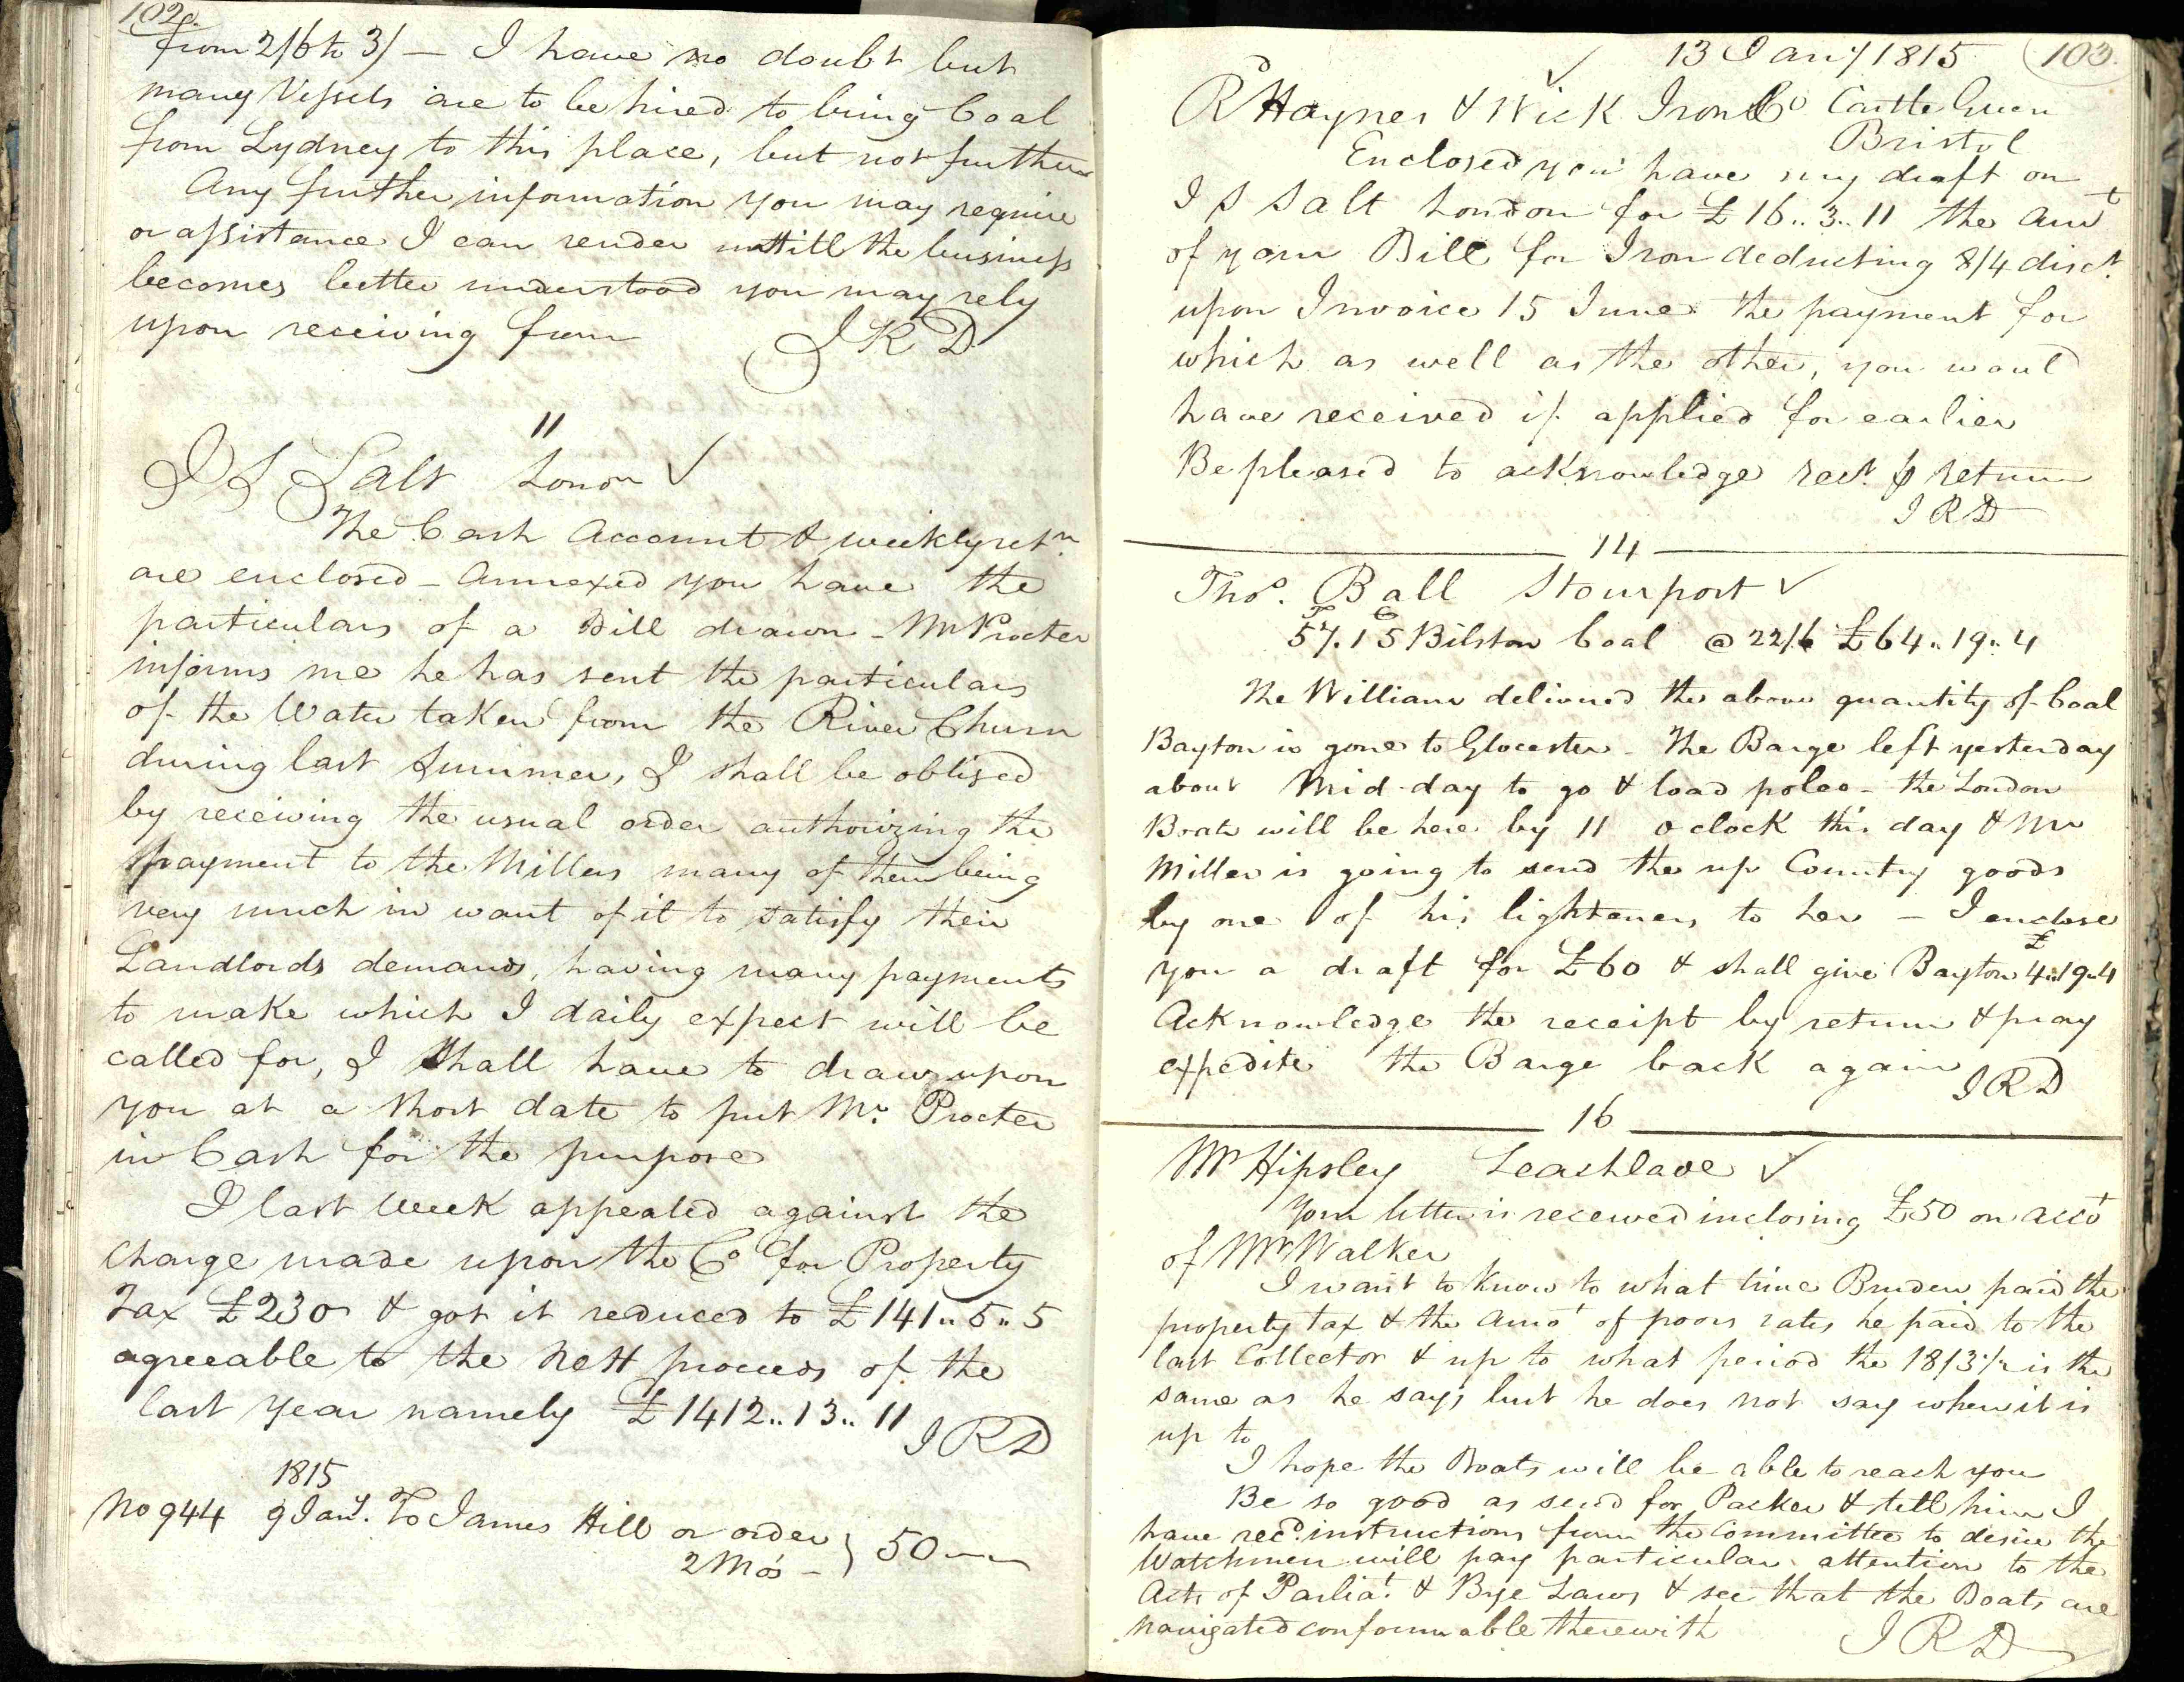 102.
from 2/6 to 3/ — I have no doubt but
many Vessels are to be hired to bring Coal
from Lydney to this place, but not further
Any further information you may require
or assistance I can render untill the business
becomes better understood you may rely
upon receiving from J R D
11
J S Salt London ✓
The Cash Account & weekly retn.
are enclosed – Annexed you have the
particulars of a Bill drawn – Mr Procter
informs me he has sent the particulars
of the Water taken from the River Churn
during last Summer, I shall be obliged
by receiving the usual order authorizing the
payment to the Millers many of them being
very much in want of it to satisfy their
Landlords demands, having many payments
to make which I daily expect will be
called for, I shall have to draw upon
you at a short date to put Mr. Procter
in Cash for the purpose
I last Week appealed against the
charge made upon the Co for Property
Tax £230 & got it reduced to £141..5..5
agreeable to the Nett proceeds of the
last Year namely £1412..13..11
J R D
1815
No 944 9 Jany. To James Hill or order } 50 — —
2 Mos –
13 Jany 1815 103.
Rd Haynes & Wick Iron Co Castle Green ✓
Bristol
Enclosed you have my draft on
J S Salt London for £16..3..11 the Amt
of your Bill for Iron deducting 8/4 disct.
upon Invoice 15 June the payment for
which as well as the other, you would
have received if applied for earlier
Be pleased to acknowledge rect. p return
J R D
14
Thos. Ball Stourport ✓
T C
57.15 Bilston Coal @ 22/6 £64..19..4
The William delivered the above quantity of Coal
Bayton is gone to Glocester – The Barge left yesterday
about Mid-day to go & load poles – the London
Boats will be here by 11 o clock this day & Mr
Miller is going to send the up Country goods
by one of his lightener, to her — I enclose
you a draft for £60 & shall give Bayton £4..19..4
Acknowledge the receipt by return & pray
expedite the Barge back again
J R D
16
Mr Hipsley Leachlade ✓
Your letter is received inclosing £50 on acct
of Mr Walker
I want to know to what time Bruden paid the
property tax & the Amot of poors rates he paid to the
last Collector & up to what period the 1813 is the
same as he says but he does not say when it is
up to
I hope the Boats will be able to reach you
Be so good as send for Packer & tell him I
have recd. instructions from the Committee to desire the
Watchmen will pay particular attention to the
Acts of Parliat. & Bye Laws & see that the Boats are
navigated conformable therewith J R D